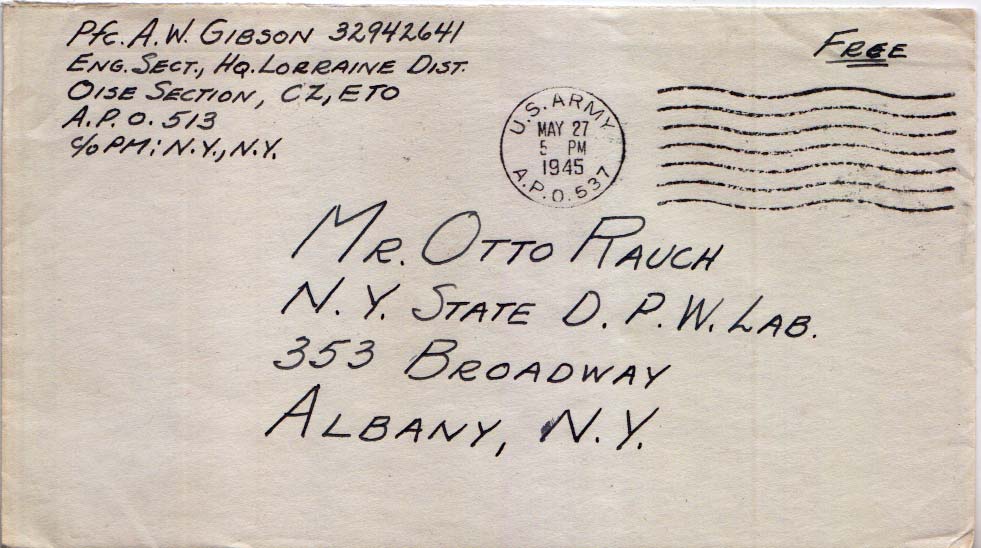 Pfc. A.W. GIBSON 32942641
ENG. SECT., HQ. LORRAINE DIST.
OISE SECTION, CZ, ETO
A.P.O. 513
c/o PM: N.Y., N.Y.
FREE
U.S. ARMY
MAY 27
5 PM
1945
A.P.O. 537
MR. OTTO RAUCH
N.Y. STATE D.P.W. LAB.
353 BROADWAY
ALBANY, N.Y.